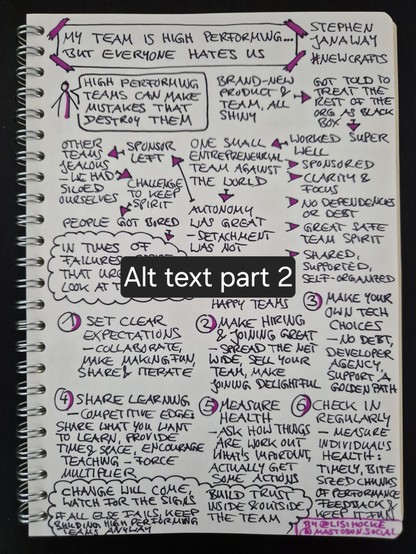 MY TEAM IS HIGH PERFORMING...
BUT EVERYONE HATES US
STEPHEN
JANAWAY
#NEWCRAFTS
HIGH PERFORMING
TEAMS CAN MAKE
MISTAKES THAT
DESTROY THEM
BRAND-NEW
PRODUCT &
TEAM, ALL
SHINY
GOT TOLD TO
TREAT THE
REST OF THE
ORG AS BLACK
BOX
WORKED SUPER
WELL
SPONSORED
CLARITY &
FOCUS
NO DEPENDENCIES
OR DEBT
GREAT SAFE
TEAM SPIRIT
SHARED,
SUPPORTED,
SELF-ORGANIZED
ONE SMALL
ENTREPRENEURIAL
TEAM AGAINST
THE WORLD
AUTONOMY
WAS GREAT
- DETACHMENT
WAS NOT
SPONSOR
LEFT
CHALLENGE
TO KEEP
SPIRIT
OTHER
TEAMS
JEALOUS
- WE HAD
SILOED
OURSELVES
PEOPLE GOT BORED
IN TIMES OF
FAILURE
THAT
LOOK AT
Alt text part 2
HAPPY TEAMS
1 SET CLEAR
EXPECTATIONS
- COLLABORATE,
MAKE MAKING FUN,
SHARE & ITERATE
2 MAKE HIRING
& JOINING GREAT
- SPREAD THE NET
WIDE, SELL YOUR
TEAM, MAKE
JOINING DELIGHTFUL
3 MAKE YOUR
OWN TECH
CHOICES
- NO DEBT,
DEVELOPER
AGENCY,
SUPPORT A
GOLDEN PATH
4 SHARE LEARNING
- COMPETITIVE EDGE:
SHARE WHAT YOU WANT
TO LEARN, PROVIDE
TIME & SPACE, ENCOURAGE
TEACHING - FORCE
MULTIPLIER
5 MEASURE
HEALTH
- ASK HOW THINGS
ARE, WORK OUT
WHAT'S IMPORTANT,
ACTUALLY GET
SOME ACTIONS
6 CHECK IN
REGULARLY
- MEASURE
INDIVIDUAL'S
HEALTH:
TIMELY, BITE
SIZED CHUNKS
OF PERFORMANCE
FEEDBACK &
KEEP IT FUN
CHANGE WILL COME,
WATCH FOR THE SIGNS
IF ALL ELSE FAILS, KEEP
BUILDING HIGH PERFORMING
TEAMS ANYWAY
BUILD TRUST
INSIDE & OUTSIDE
THE TEAM
BY @LISIHOCKE
@MASTODON.SOCIAL